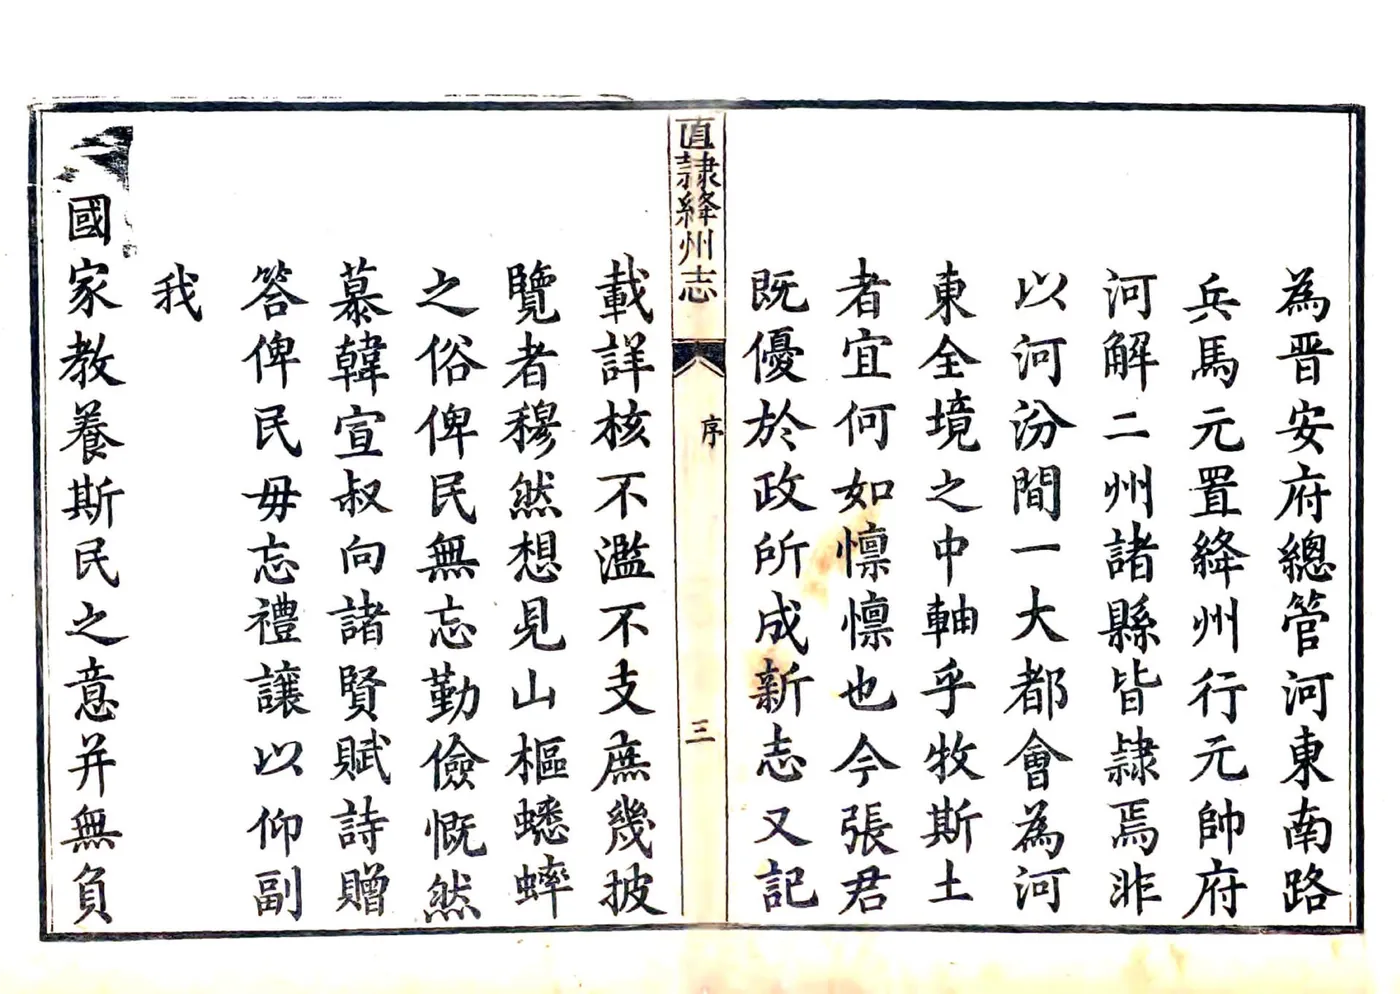 為晋安府總管河東南路
兵馬元置絳州行元帥府
河解二州諸縣皆隷焉非
以河汾間一大都會為河
東全境之中軸乎牧斯土
者宜何如懍懍也今張君
既優於政所成新志又記
直隷絳州志
序
三
載詳核不濫不支庶幾披
覽者穆然想見山樞蟋蟀
之俗俾民無忘勤儉慨然
慕韓宣叔向諸賢賦詩贈
答俾民毋忘禮讓以仰副
我
國家教養斯民之意并無負